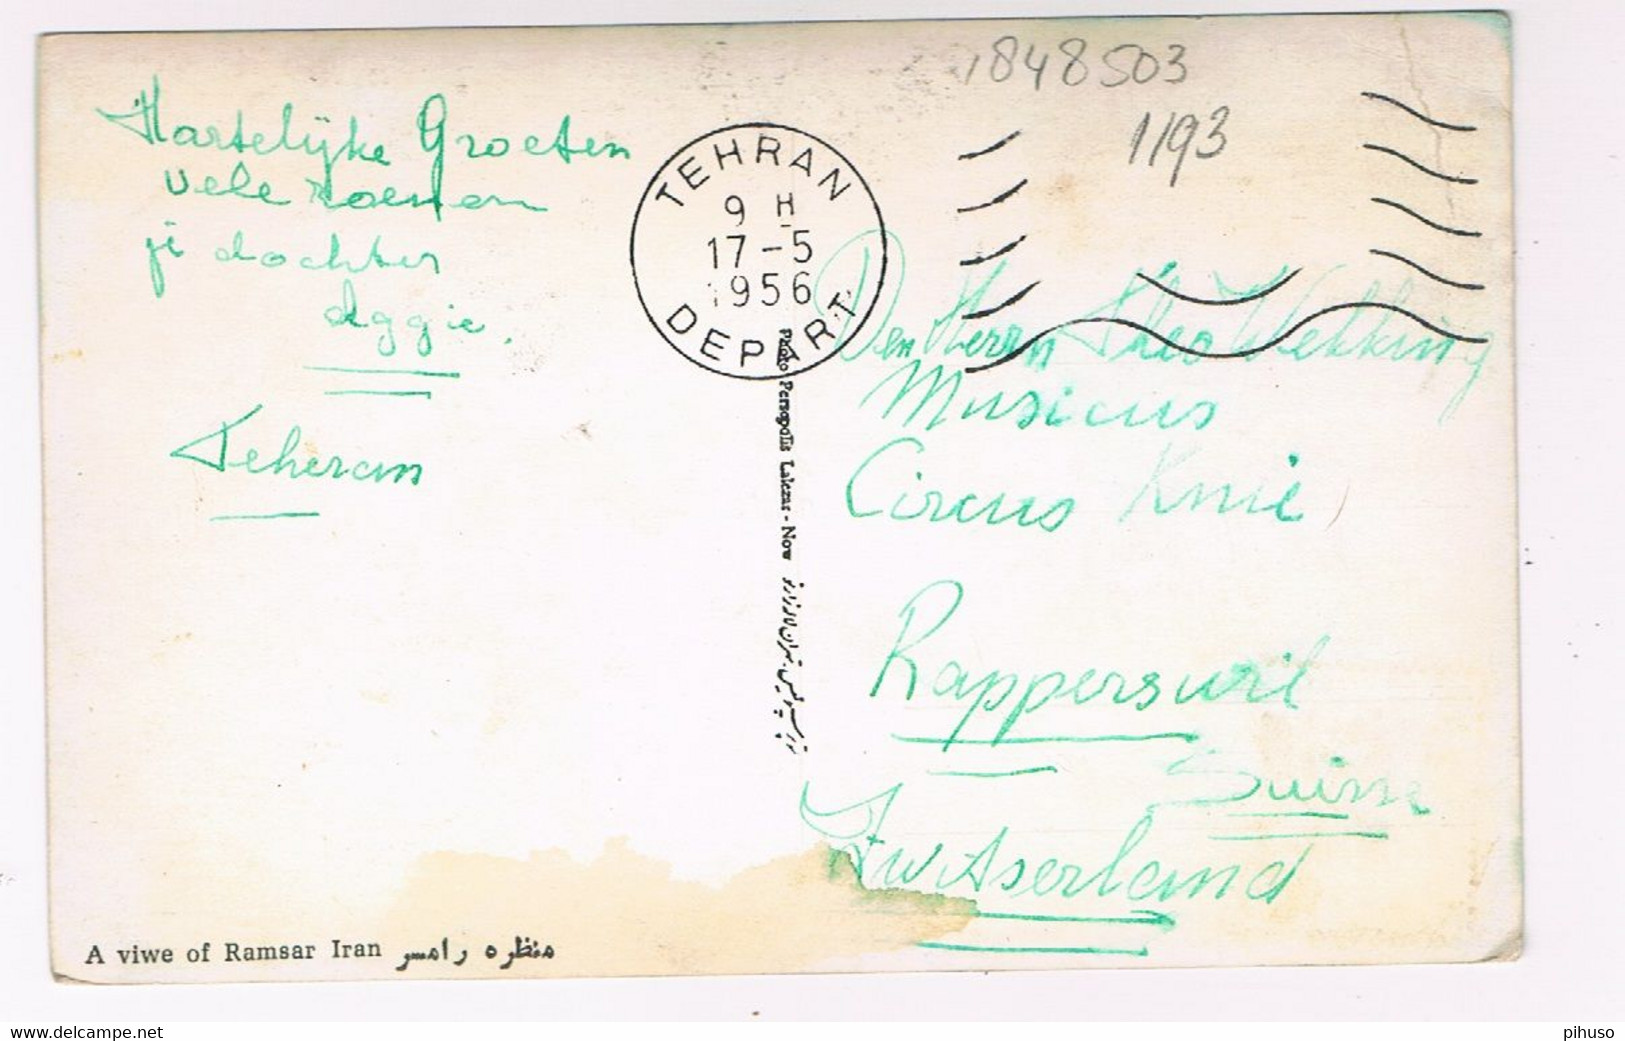 1848503
1193
Hartelijke Groeten
vele zoenen
je dochter
Aggie.
Teheran
TEHRAN
9 H
17-5
1956
DEPART
Den Herrn Theo Wekking
Musicus
Circus Knie
Rapperswil
Suisse
Zwitserland
Photo Persepolis Lalezar - Now
A viwe of Ramsar Iran منظره رامسر
www.delcampe.net
pihuso